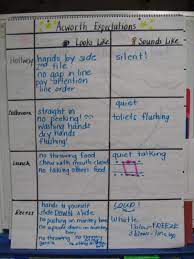 Acworth Expectations
Looks Like
Sounds Like
Hallway
hands by side
single file
no gap in line
pay attention
line order
silent!
Bathroom
straight in
no peeking!
washing hands
dry hands
flushing
quiet
toliets flushing
Lunch
no throwing food
chew with mouth closed
no taking others food
quiet talking
Recess
hands to yourself
slide DOWN slide
no throwing
LOUD!
Whistle
1 blow = FREEZE
3 blow = line up